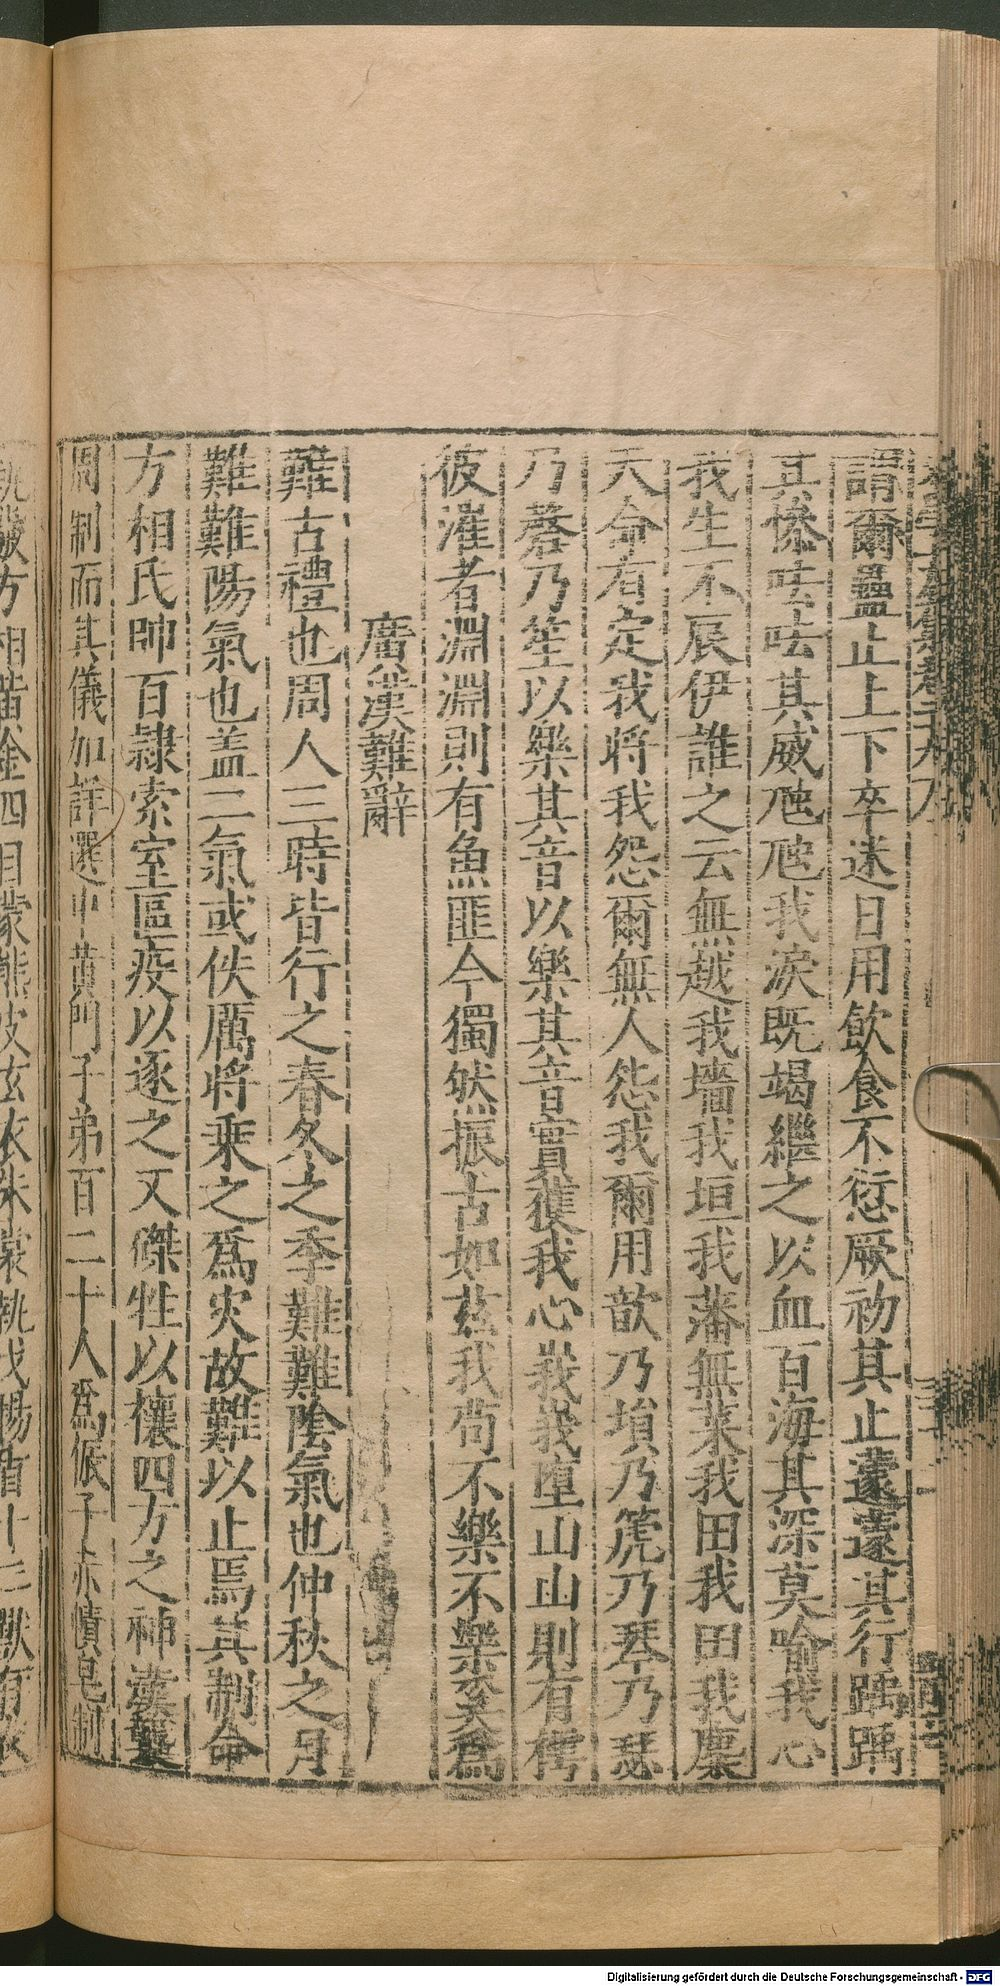 謂爾蠱止上下卒迷日用飲食不愆厥初其止蘧蘧其行踽踽
其慘呿呿其威虺虺我淚既竭繼之以血百海其深莫喻我心
我生不辰伊誰之云無越我墻我垣我藩無萊我田我田我廩
天命有定我將我怨爾無人怨我爾用歆乃塤乃篪乃琴乃瑟
乃磬乃笙以樂其音以樂其音實獲我心哉我墮山山則有樗
彼漼者淵淵則有魚匪今獨然振古如茲我苟不樂不樂奚為
廣漢難辭
難古禮也周人三時皆行之春冬之季難難陰氣也仲秋之月
難難陽氣也盖二氣或佚厲將乘之為災故難以止焉其制命
方相氏帥百隸索室區疫以逐之又磔牲以禳四方之神漢襲
周制而其儀加詳選中黃門子弟百二十人為侲子赤幘皂制
方相 金四目蒙熊皮玄衣朱裳執戈揚盾十二獸有衣
Digitalisierung gefördert durch die Deutsche Forschungsgemeinschaft - DFG